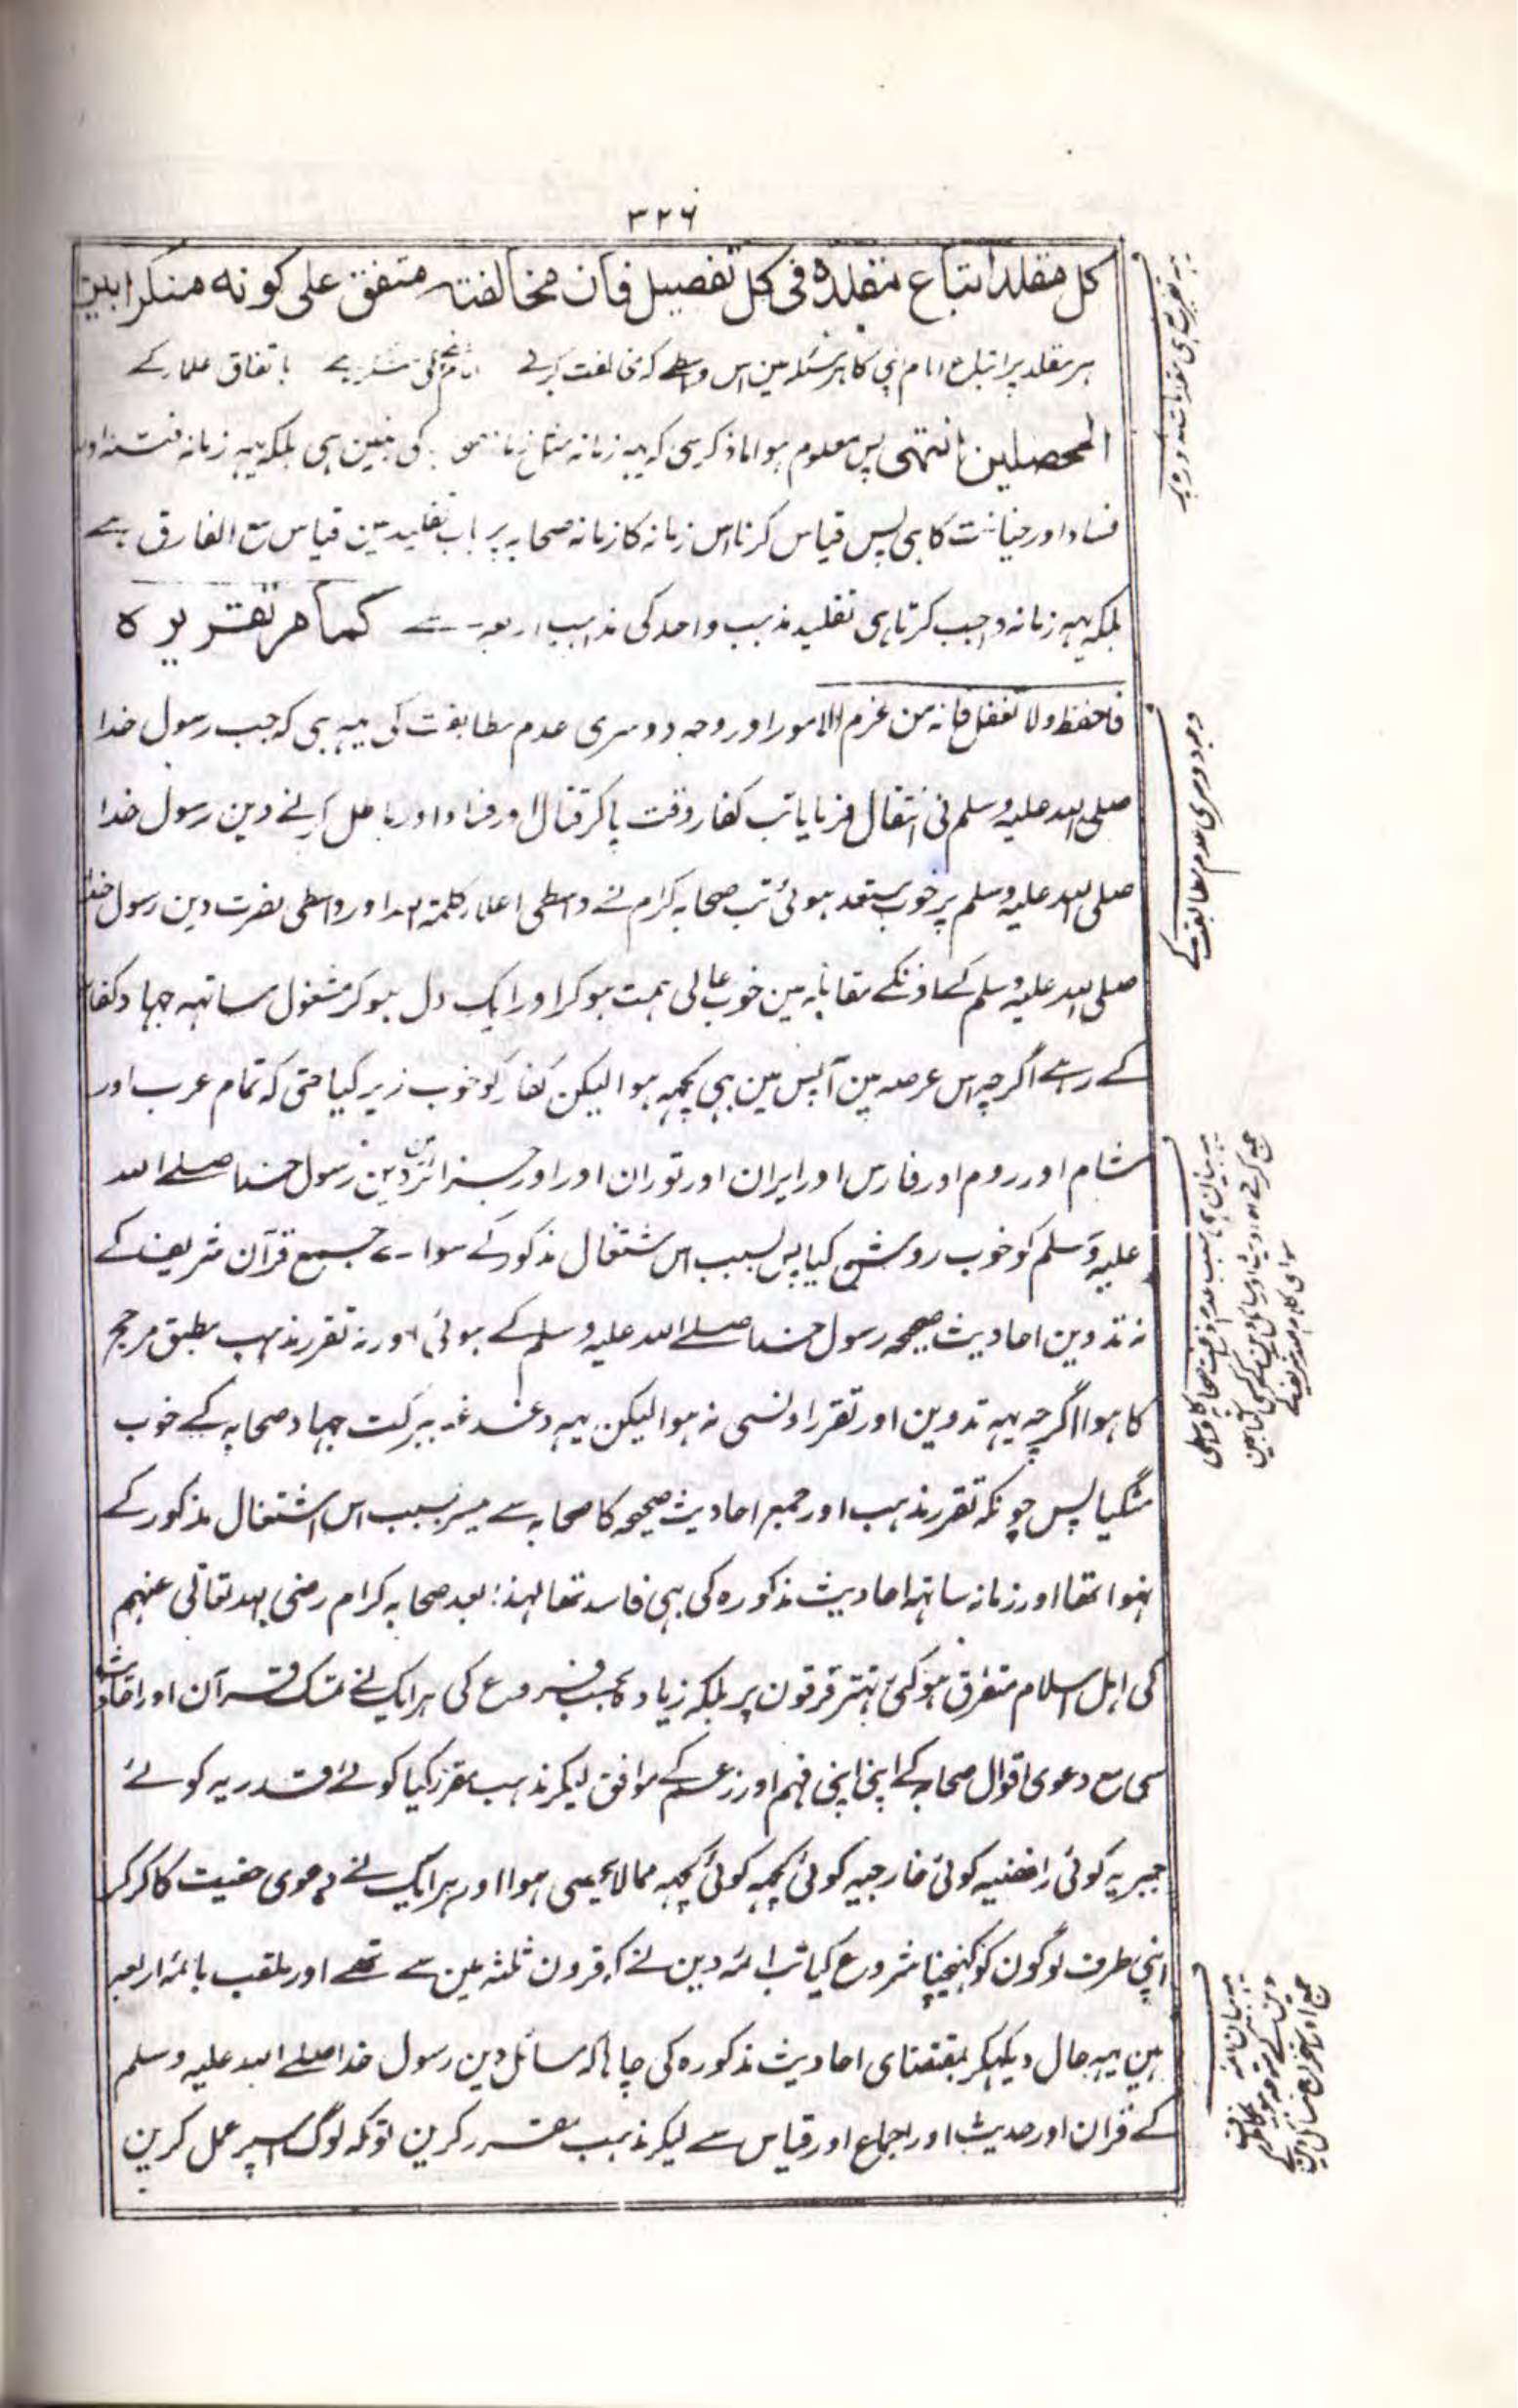 ۳۲۶
كل مقلد اتباع مقلده فى كل تفصيل فان مخالفته متفق على كونه منكرا بين
ہر مقلد پر اتباع امام اپنی کا ہر مسئلہ مین اس واسطے کہ مخالفت کرنے باتفاق علمار کے
المحصلين انتهى پس معلوم ہوا ماذکر سی کہ یہہ زمانہ مثل زمانہ کی نہین ہی بلکہ یہہ زمانہ فتنہ اور
فساد اور خیانت کا ہی پس قیاس کرنا اس زمانہ کا زمانہ صحابہ پر باب تقلید مین قیاس مع الفارق ہے
بلکہ یہہ زمانہ واجب کرتا ہی تقلید مذہب واحد کی مذاہب اربعہ سے كما مر تقريره
فاحفظ ولا تغفل فانه من عزم الامور اور وجہ دوسری عدم مطابقت کی یہہ ہی کہ جب رسول خدا
صلی اللہ علیہ وسلم نی انتقال فرمایا تب کفار وقت پا کر قتال اور فساد اور باطل کرنے دین رسول خدا
صلی اللہ علیہ وسلم پر خوب مستعد ہوئی تب صحابہ کرام نے واسطی اعلار کلمۃ اللہ اور واسطی نصرت دین رسول خدا
صلی اللہ علیہ وسلم کے اونکے مقابلہ مین خوب عالی ہمت ہو کر اور ایک دل ہو کر مشغول ساتہہ جہاد کفار
کے رہے اگرچہ اس عرصہ مین آپس مین بہی کچہہ ہوا لیکن کفار کو خوب زیر کیا حتی کہ تمام عرب اور
شام اور روم اور فارس اور ایران اور توران اور اور جزائر مین دین رسول خدا صلے اللہ
علیہ وسلم کو خوب روشن کیا پس بسبب اس شتغال مذکور کے سواے جمع قرآن شریف کے
نہ تدوین احادیث صحیحہ رسول خدا صلے اللہ علیہ وسلم کے ہوئی اور نہ تقرر مذہب مطبق مرجح
کا ہوا اگرچہ یہہ تدوین اور تقرر اونسی نہ ہوا لیکن یہہ دغدغہ ببرکت جہاد صحابہ کے خوب
مٹگیا پس چونکہ تقرر مذہب اور جمع احادیث صحیحہ کا صحابہ سے میسر بسبب اس اشتغال مذکور کے
نہوا تھا اور زمانہ ساتہہ احادیث مذکورہ کی بہی فاسد تھا لہذا بعد صحابہ کرام رضی اللہ تعالی عنہم
کی اہل اسلام متفرق ہو گئی بہتر فرقون پر بلکہ زیادہ بحسب فروع کی ہر ایک نے تمسک قرآن اور احادیث
سی مع دعوی اقوال صحابہ کے اپنی اپنی فہم اور زعم کے موافق لیکر مذہب مقرر کیا کوئے قدریہ کوئے
جبریہ کوئی رافضیہ کوئی خارجیہ کوئی کچہہ کوئی کچہہ ممالا یحصی ہوا اور ہر ایک نے دعوی حقیت کا کر کر
اپنی طرف لوگون کو کہنیچنا شروع کیا تب ائمہ دین نے کہ قرون ثلثہ مین سے تھے اور ملقب بائمہ اربعہ
ہین یہہ حال دیکہکر بمقتضای احادیث مذکورہ کی چاہا کہ مسائل دین رسول خدا صلے اللہ علیہ وسلم
کے قران اور حدیث اور اجماع اور قیاس سے لیکر مذہب مقرر کرین توکہ لوگ اسپر عمل کرین
وجہ دوسری عدم مطابقت کے